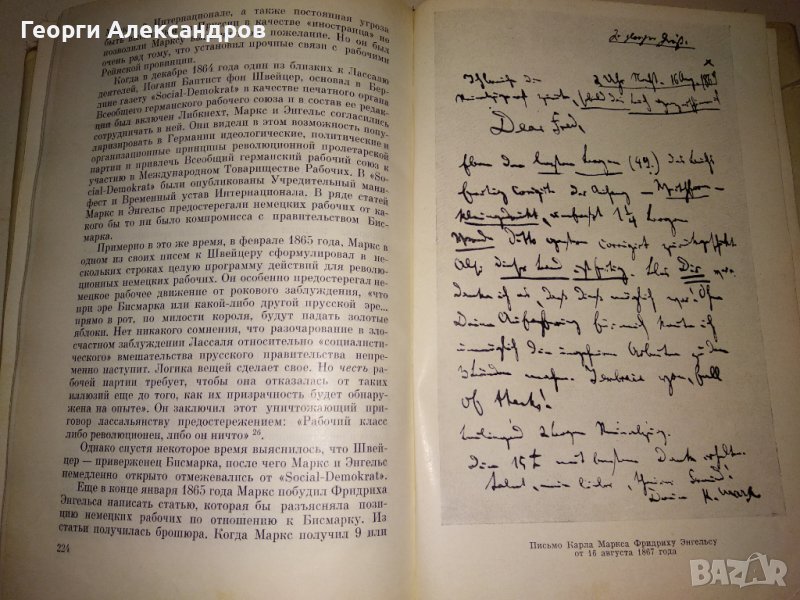 Георги Александров
Интернационале, а также постоянная угроза
в качестве «иностранца» не
позволили Марксу
пожелание. Но он был
очень рад тому, что установил прочные связи с рабочими
Рейнской провинции.
Когда в декабре 1864 год один из близких к Лассалю
деятелей, Иоганн Баптист фон Швейцер, основал в Бер-
лине газету «Social-Demokrat» в качестве печатного органа
Всеобщего германского рабочего союза и в состав ее редак-
ции был включен Либкнехт, Маркс и Энгельс согласились
сотрудничать в ней. Они видели в этом возможность попу-
ляризировать в Германии идеологические, политические и
организационные принципы революционной пролетарской
партии и привлечь Всеобщий германский рабочий союз к
участию в Международном Товариществе Рабочих. В «So-
cial-Demokrat» были опубликованы Учредительный мани-
фест и Временный устав Интернационала. В ряде статей
Маркс и Энгельс предостерегали немецких рабочих от ка-
кого бы то ни было компромисса с правительством Бис-
марка.
Примерно в это же время, в феврале 1865 года, Маркс в
одном из своих писем к Швейцеру сформулировал в не-
скольких строках целую программу действий для револю-
ционных немецких рабочих. Он особенно предостерегал не-
мецкое рабочее движение от рокового заблуждения, «что
при эре Бисмарка или какой-либо другой прусской эре...
прямо в рот, по милости короля, будут падать золотые
яблоки. Нет никакого сомнения, что разочарование в зло-
счастном заблуждении Лассаля относительно «социалисти-
ческого» вмешательства прусского правительства непре-
менно наступит. Логика вещей сделает свое. Но честь ра-
бочей партии требует, чтобы она отказалась от таких
иллюзий еще до того, как их призрачность будет обнару-
жена на опыте». Он заключил этот уничтожающий при-
говор лассальянству предостережением: «Рабочий класс
либо революционен, либо он ничто» 26.
Однако спустя некоторое время выяснилось, что Швей-
цер — приверженец Бисмарка, после чего Маркс и Энгельс
немедленно открыто отмежевались от «Social-Demokrat».
Еще в конце января 1865 года Маркс побудил Фридриха
Энгельса написать статью, которая бы разъясняла пози-
цию немецких рабочих по отношению к Бисмарку. Из
статьи получилась брошюра. Когда Маркс получил 9 или
224
2 Uhr Nacht, 16 Aug. 1867
Dear Fred,
Eben den letzten Bogen (49.) des Buchs
fertig corrigirt. Der Anhang — Werthform —
kleingedruckt, umfasst 1 1/4 Bogen.
Vorrede ditto gestern corrigirt zurückgeschickt.
Also dieser Band ist fertig. Blos Dir ver-
danke ich es, dass dies möglich war! Ohne
Deine Aufopferung für mich konnte ich
unmöglich die ungeheuren Arbeiten zu den 3
Bänden machen. I embrace you, full
of thanks!
Die 15 £ mit bestem Dank erhalten.
Salut, mein lieber, theurer Freund!
Dein K. Marx
Письмо Карла Маркса Фридриху Энгельсу
от 16 августа 1867 года
BAZAR